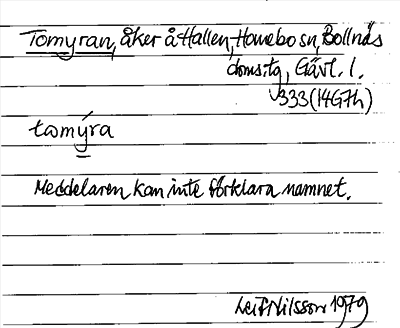 Tomyran, åker å Hallen, Homebo sn, Bollnäs
doms:tg, Gävl. l.
333 (14G7h)
tomýra
Meddelaren kan inte förklara namnet.
Leif Nilsson 1979